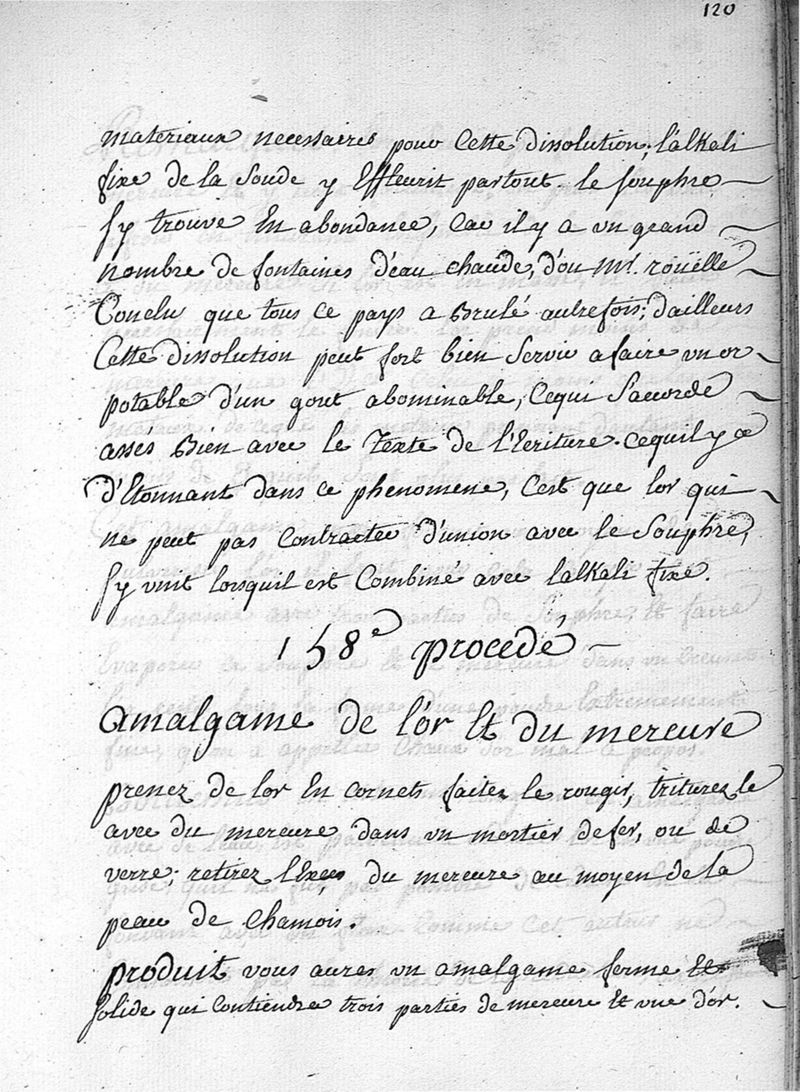 120
materiaux necessaires pour Cette dissolution; l'alkali
fixe de la Soude y Effleurit partout. le souphre
s'y trouve En abondance, Car il y a un grand
nombre de fontaines d'eau chaude, d'ou Mr. roüelle
Conclu que tous ce pays a Brulé autrefois; d'ailleurs
Cette dissolution peut fort bien Servir a faire un or
potable d'un gout abominable, Cequi S'accorde
asses Bien avec le Texte de l'Ecriture. Cequil y a
d'Etonnant dans ce phenomene, C'est que l'or qui
ne peut pas Contracter d'union avec le Souphre,
s'y unit lorsquil est Combiné avec lalkali fixe.
158e procedé
amalgame de l'or Et du mercure
prenez de lor En cornets faites le rougir, triturez le
avec du mercure dans un mortier de fer, ou de
verre; retirez l'Exces du mercure au moyen de la
peau de Chamois.
produit vous aures un amalgame ferme Et
solide qui Contiendra trois parties de mercure Et une d'or.